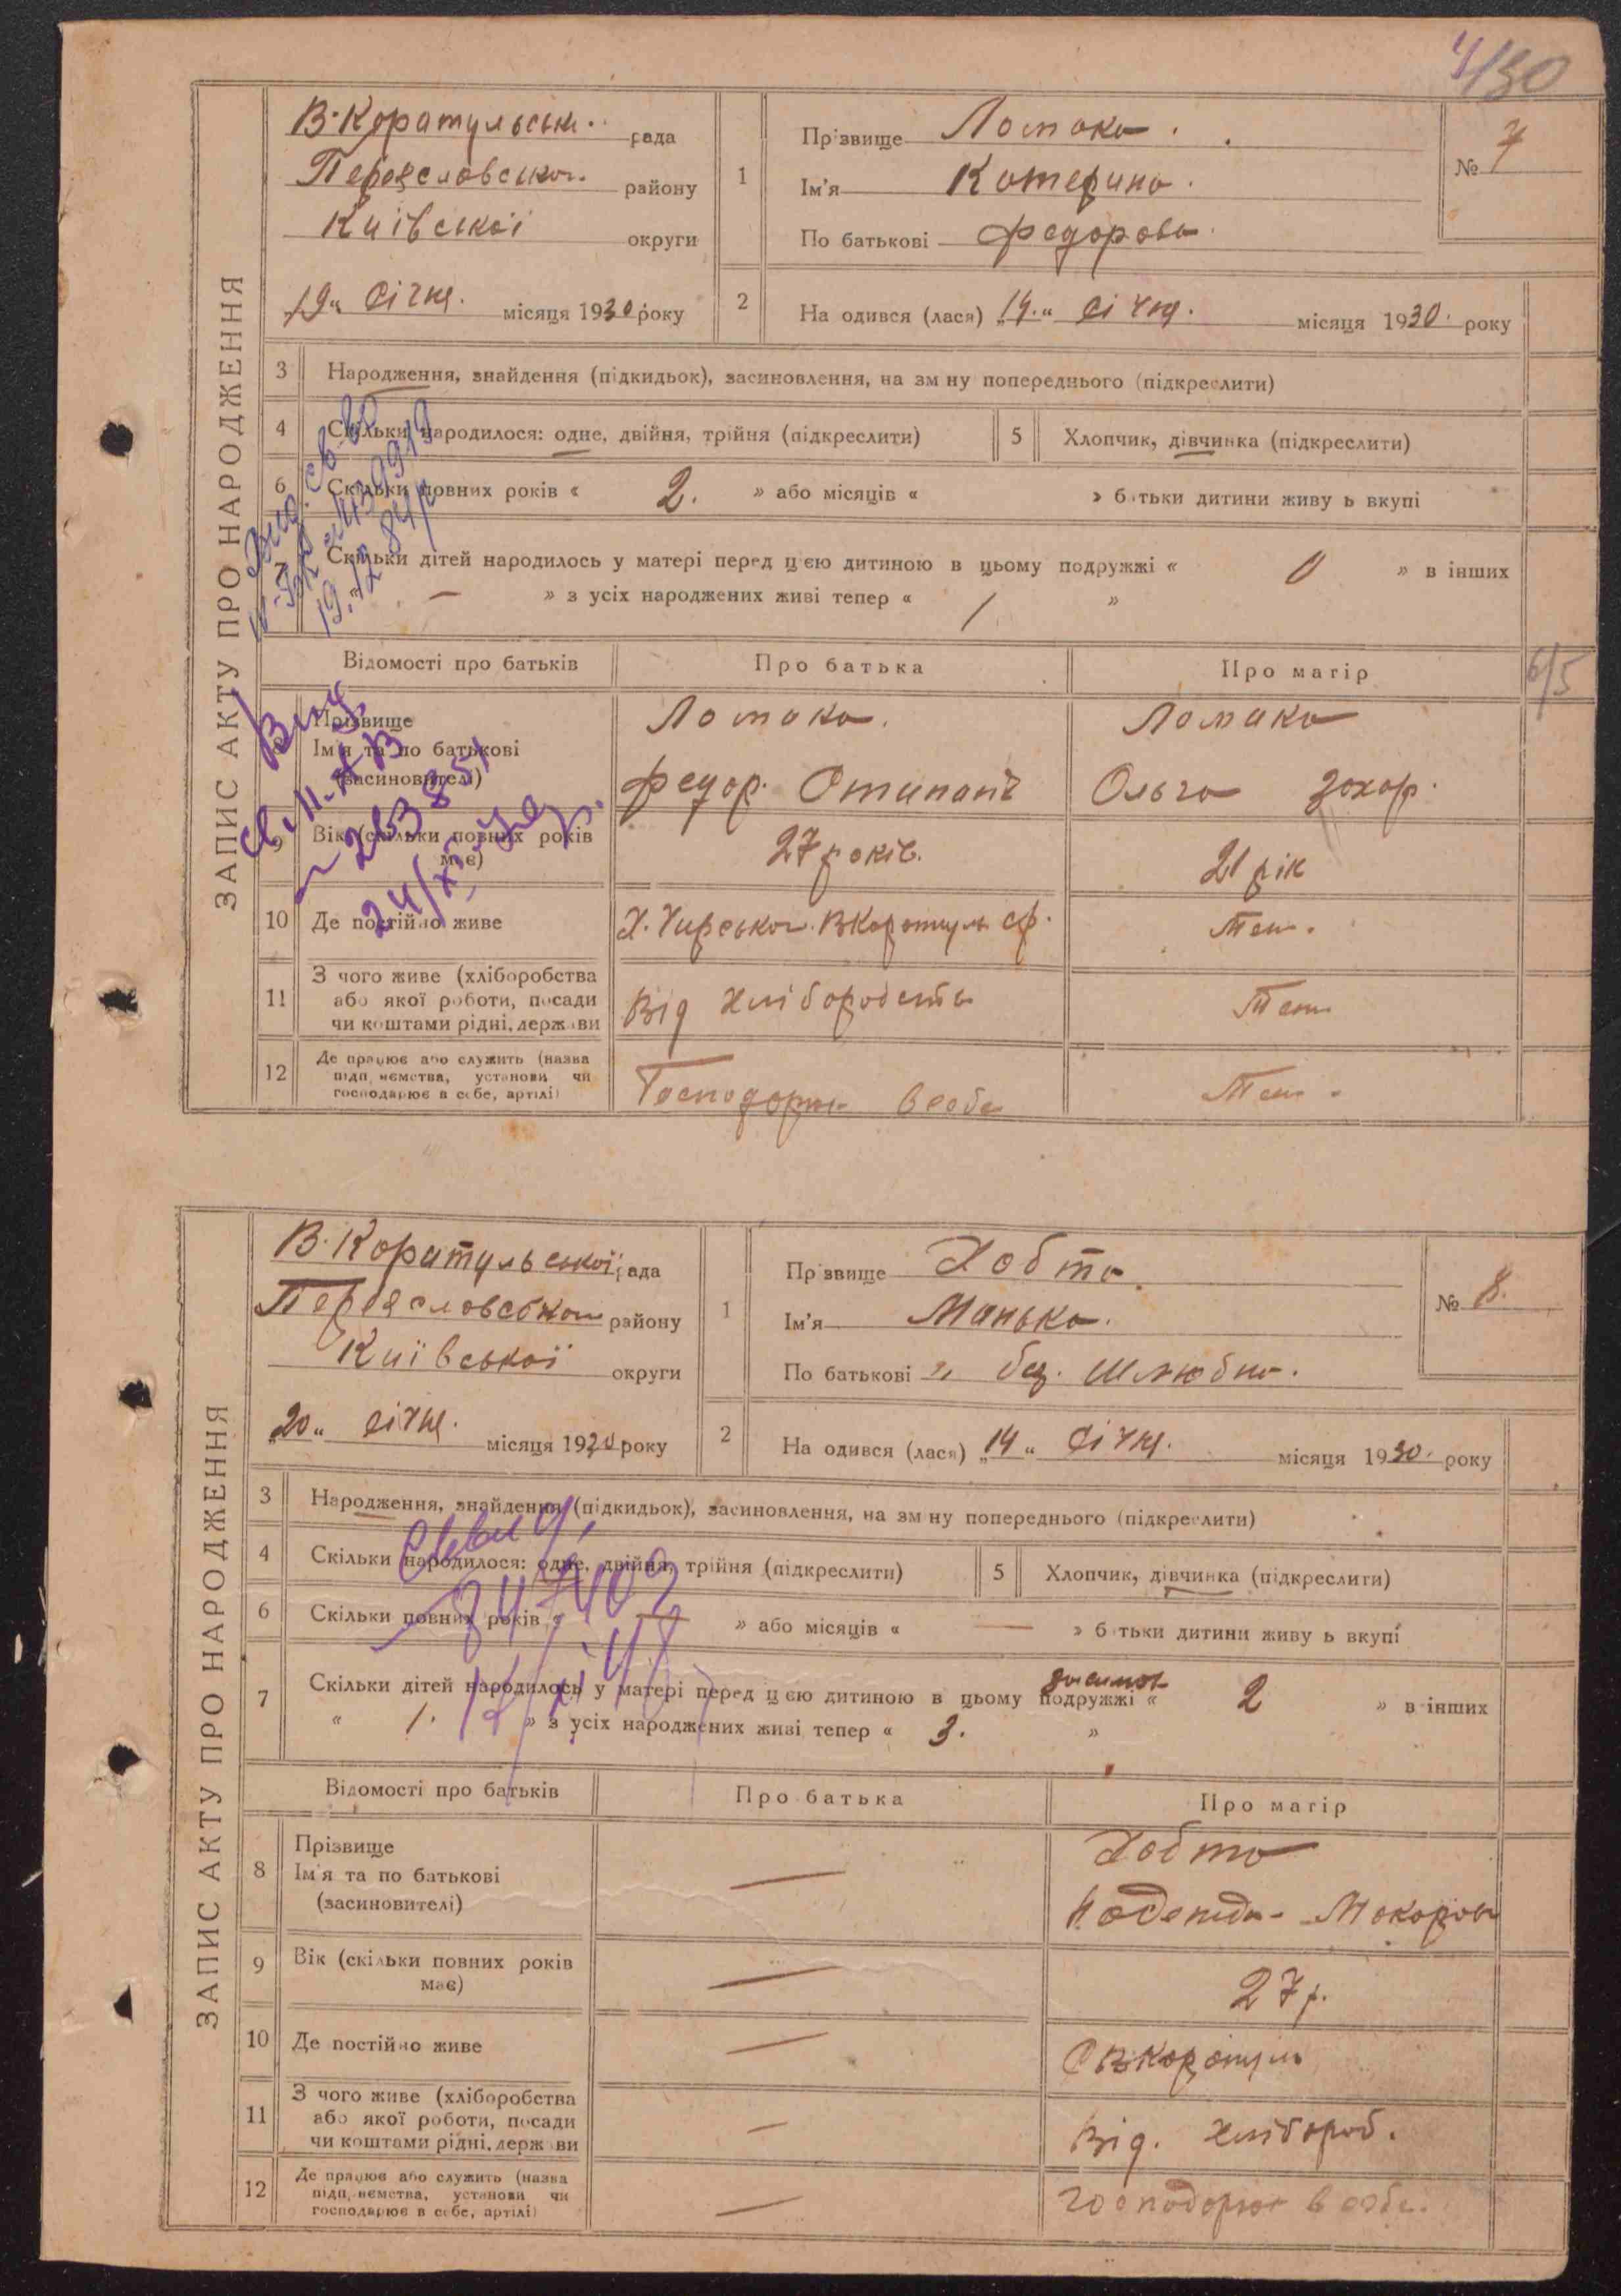 4/30
ЗАПИС АКТУ ПРО НАРОДЖЕННЯ
В-Коратульськ. рада
Переяславськог. району
Київської округи
„19“ Січня. місяця 1930 року
1 Прізвище Ломака.
Ім'я Катерина.
По батькові Федорова.
№ 7
2 На одився (лася) „14.“ Січня. місяця 1930. року
3 Народження, знайдення (підкидьок), засиновлення, на зм ну попереднього (підкреслити)
4 Скільки народилося: одне, двійня, трійня (підкреслити) 5 Хлопчик, дівчинка (підкреслити)
6 Скільки повних років « 2. » або місяців « » батьки дитини живу ь вкупі
7 Скільки дітей народилось у матері перед цією дитиною в цьому подружжі « 0 » в інших
« — » з усіх народжених живі тепер « 1 »
Відомості про батьків Про батька Про матір
6/5
8 Прізвище Ломака. Ломака
Ім'я та по батькові
(засиновителі) Федор. Ольга Захар.
9 Вік (скільки повних років має) 27 років. 21 рік
10 Де постійно живе Х. Вкоратуль ср. Теж.
11 З чого живе (хліборобства
або якої роботи, посади
чи коштами рідні, держави Від хліборобств Теж
12 Де працює або служить (назва
підп иємства, установи чи
господарює в себе, артілі) Господарює в себе Теж.
ЗАПИС АКТУ ПРО НАРОДЖЕННЯ
В. Коратульської рада
Переяславськог району
Київської округи
„20“ січня. місяця 1930 року
1 Прізвище Хобта.
Ім'я Манька.
По батькові без. Шлюбна.
№ 8.
2 На одився (лася) „14“ Січня. місяця 1930. року
3 Народження, знайдення (підкидьок), засиновлення, на зм ну попереднього (підкреслити)
4 Скільки народилося: одне, двійня, трійня (підкреслити) 5 Хлопчик, дівчинка (підкреслити)
6 Скільки повних років « — » або місяців « — » батьки дитини живу ь вкупі
7 Скільки дітей народилось у матері перед цією дитиною в цьому подружжі « 2 » в інших
« 1. » з усіх народжених живі тепер « 3. »
Відомості про батьків Про батька Про матір
8 Прізвище — Хобта
Ім'я та по батькові
(засиновителі) Надежда Макарова
9 Вік (скільки повних років має) — 27 р.
10 Де постійно живе — С Вкоратуль
11 З чого живе (хліборобства
або якої роботи, посади
чи коштами рідні, держави — Від. хлібороб.
12 Де працює або служить (назва
підп иємства, установи чи
господарює в себе, артілі) — господарює в себе.